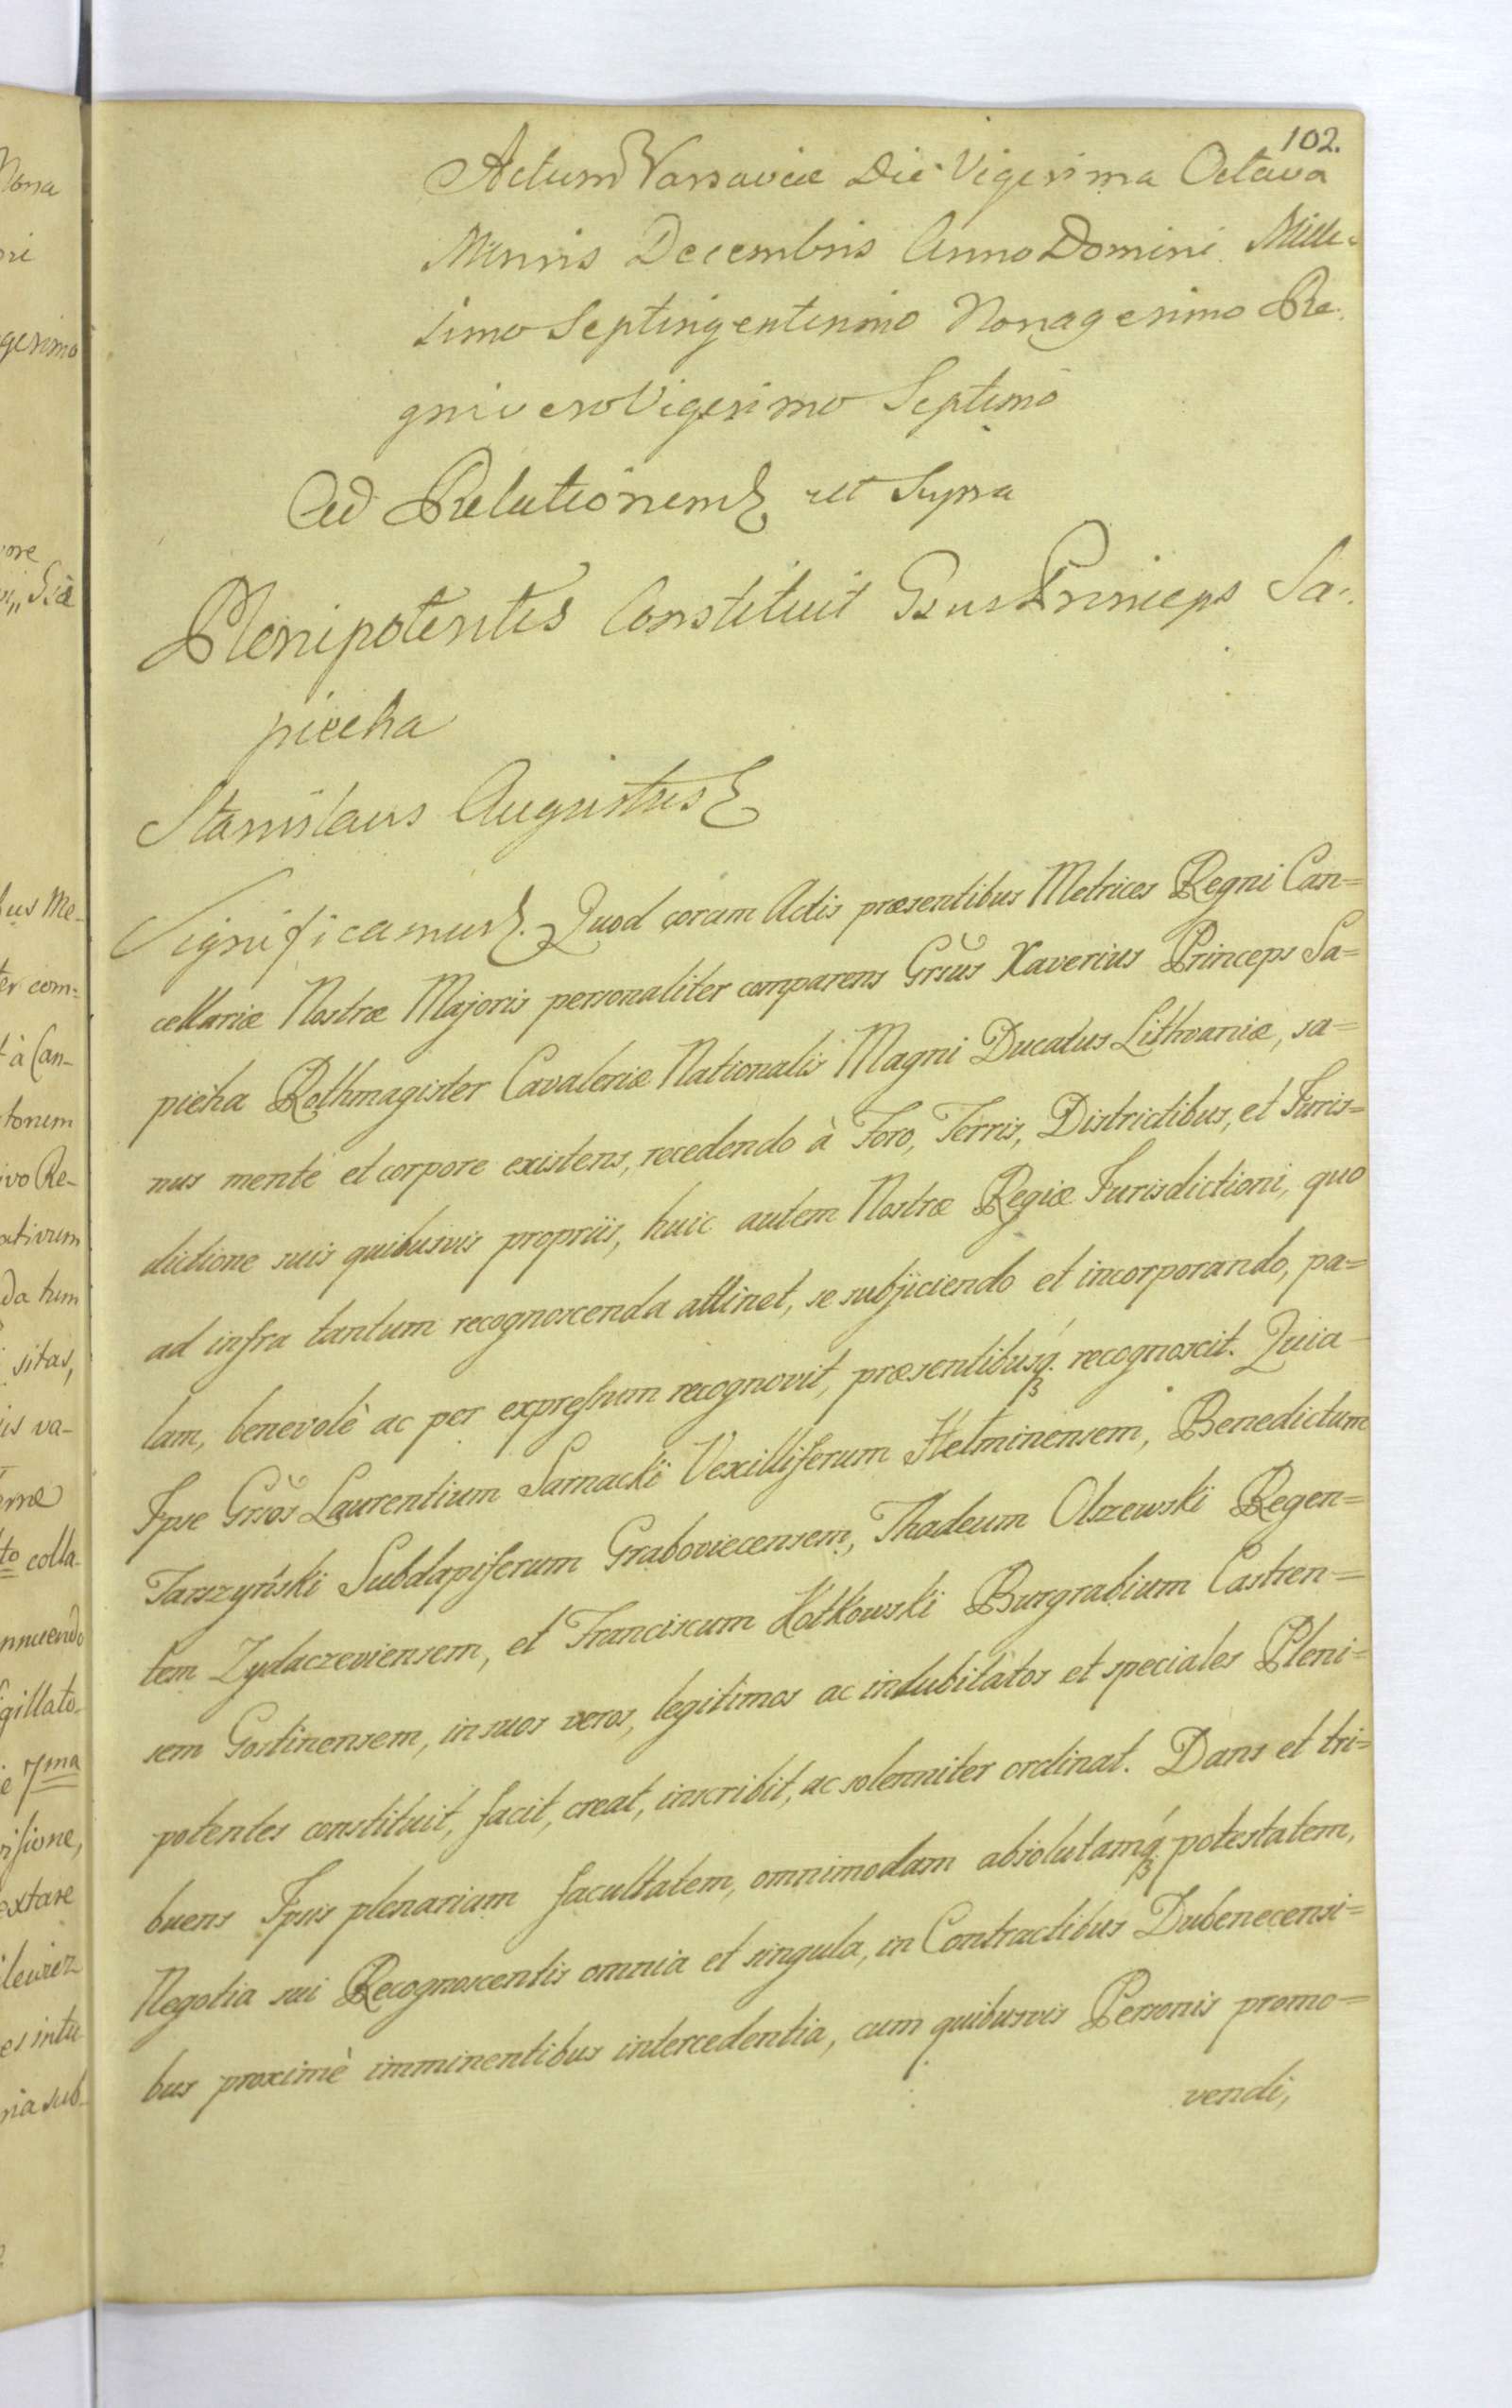 102.
Actum Varsaviæ Die Vigesima Octava
Mensis Decembris Anno Domini Mille-
simo Septingentesimo Nonagesimo Re-
gni vero Vigesimo Septimo
Ad Relationem ut Supra
Plenipotentes Constituit Gsus Princeps Sa-
pieha
Stanislaus Augustus
Significamus. Quod coram Actis præsentibus Metrices Regni Can=
cellariæ Nostræ Majoris personaliter comparens Grsus Xaverius Princeps Sa=
pieha Rothmagister Cavaleriæ Nationalis Magni Ducatus Lithvaniæ, sa=
nus mente et corpore existens, recedendo à Foro, Terris, Districtibus, et Juris=
dictione suis quibusvis propriis, huic autem Nostræ Regiæ Jurisdictioni, quo
ad infra tantum recognoscenda attinet, se subjiciendo et incorporando, pa=
lam, benevolè ac per expressum recognovit, præsentibusq. recognoscit. Quia
Ipse Grsos Laurentium Sarnacki Vexilliferum Helminensem, Benedictum
Jarszyński Subdapiferum Graboviecensem, Thadeum Olszewski Regen=
tem Zydaczeviensem, et Franciscum Kotkowski Burgrabium Castren=
sem Gostinensem, in suos veros, legitimos ac indubitatos et speciales Pleni=
potentes constituit, facit, creat, inscribit, ac solenniter ordinat. Dans et tri=
buens Ipsis plenariam facultatem, omnimodam absolutamq potestatem,
Negotia sui Recognoscentis omnia et singula, in Contractibus Dubenecensi=
bus proximè imminentibus intercedentia, cum quibusvis Personis promo=
vendi,